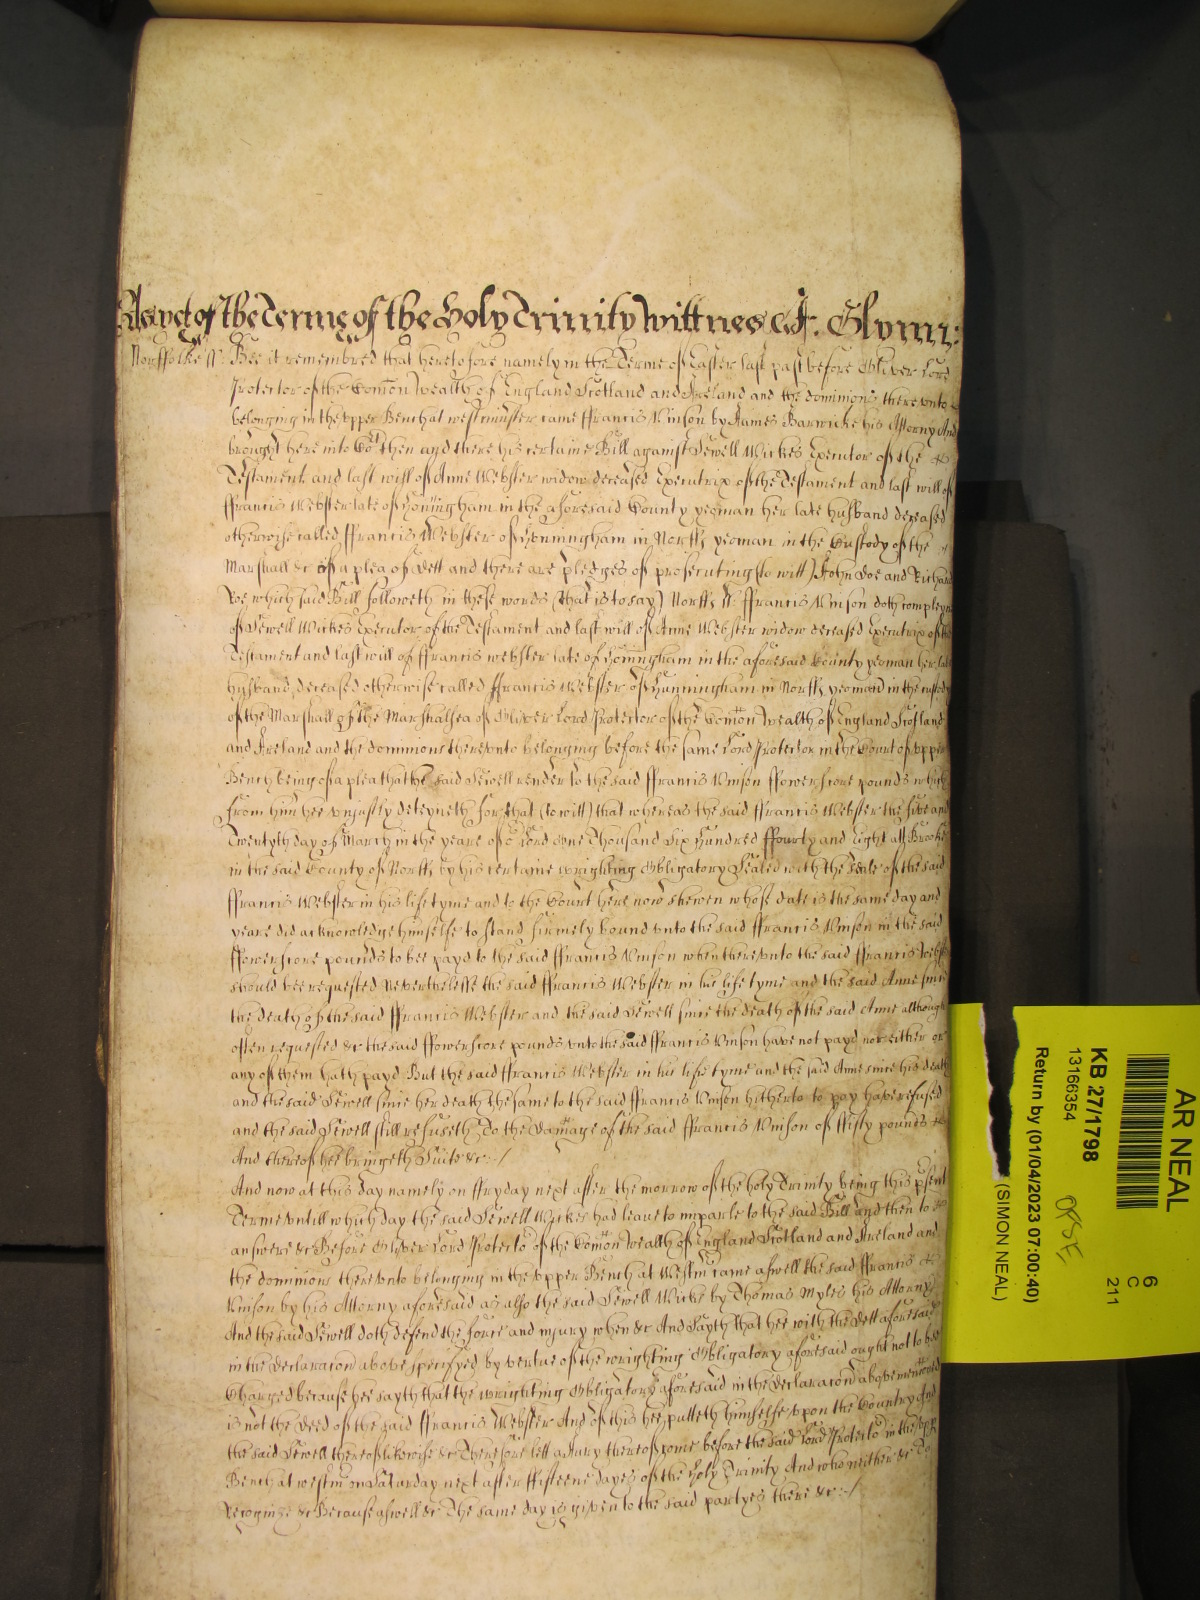 As yet of the Terme of the Holy Trinity Wittnes J. Glynn:
Norffolke ss Bee it remembred that heretofore namely in the Terme of Easter last past before Oliver Lord
Protector of the Comon Wealth of England Scotland and Ireland and the dominions therevnto
belonging in the vpper Bench at westminster came ffrancis Vinson by James Barwicke his Attorny And
brought here into Cot then and there his certaine Bill against Sewell Wickes Executor of the
Testament and last will of Anne Webster widow deceased Executrix of the Testament and last will of
ffrancis Webster late of Honingham in the aforesaid County yeoman her late husband deceased
otherwise called ffrancis Webster of Hunningham in Norff yeoman in the Custody of the
Marshall &c of a plea of Dett and there are pledges of prosecuting (to witt) John Doe and Richard
Roe which said Bill followeth in these words (that is to say) Norff ss ffrancis Vinson doth compleyn
of Sewell Wickes Executor of the Testament and last will of Anne Webster widow deceased Executrix of the
Testament and last will of ffrancis webster late of Honingham in the aforesaid County yeoman her late
husband deceased otherwise called ffrancis Webster of Hunningham in Norff yeoman in the custody
of the Marshall of the Marshalsea of Oliver Lord Protector of the Comon Wealth of England Scotland
and Ireland and the dominions therevnto belonging before the same Lord Protector in the Court of vpper
Bench being of a plea that the said Sewell render to the said ffrancis Vinson ffowerscore pounds which
from him hee vniustly deteyneth for that (to witt) that whereas the said ffrancis Webster the five and
Twentyth day of March in the yeare of o Lord One Thousand Six Hundred ffourty and Eight att Brooke
in the said County of Norff by his certaine wrighting Obligatory Sealed with the Seale of the said
ffrancis Webster in his life tyme and to the Court here now shewen whose date is the same day and
yeare did acknowledge himselfe to stand firmely bound vnto the said ffrancis Vinson in the said
ffowerscore pounds to bee payd to the said ffrancis Vinson when therevnto the said ffrancis Webster
should bee requested Neverthelesse the said ffrancis Webster in his life tyme and the said Anne since
the death of the said ffrancis Webster and the said Sewell since the death of the said Anne although
often requested &c the said ffowerscore pounds vnto the said ffrancis Vinson have not payd nor either or
any of them hath payd But the said ffrancis Webster in his life tyme and the said Anne since his death
and the said Sewell since her death the same to the said ffrancis Vinson hitherto to pay have refused
and the said Sewell still refuseth To the Damage of the said ffrancis Vinson of ffifty pounds
And thereof hee bringeth Suite &c:/
And now at this day namely on ffryday next after the morrow of the holy Trinity being this psent
Terme vntill which day the said Sewell Wickes had leave to imparle to the said Bill and then to
answere &c Before Oliver Lord Protecto of the Comon Wealth of England Scotland and Ireland and
the dominions therevnto belonging in the vpper Bench at Westm came aswell the said ffrancis
Vinson by his Attorny aforesaid as also the said Sewell Wicks by Thomas Myles his Attorny
And the said Sewell doth defend the force and iniury when &c And Sayth that hee with the Dett aforesaid
in the declaracon above specifyed by vertue of the wrighting Obligatory aforesaid ought not to bee
Charged because hee sayth that the wrighting Obligatory aforesaid in the declaracon above mentioned
is not the deed of the said ffrancis Webster And of this hee putteth himselfe vpon the Country And
the said Sewell thereof likewise &c Therefore lett a Jury thereof come before the said Lord Protecto in the vpper
Bench at westm on Saturday next after ffifteene dayes of the Holy Trinity And who neither &c To
Recognize &c Because aswell &c The same day is given to the said partyes there &c:/
AR NEAL
6
C
211
KB 27/1798
13166354
Return by (01/04/2023 07:00:40)
(SIMON NEAL)